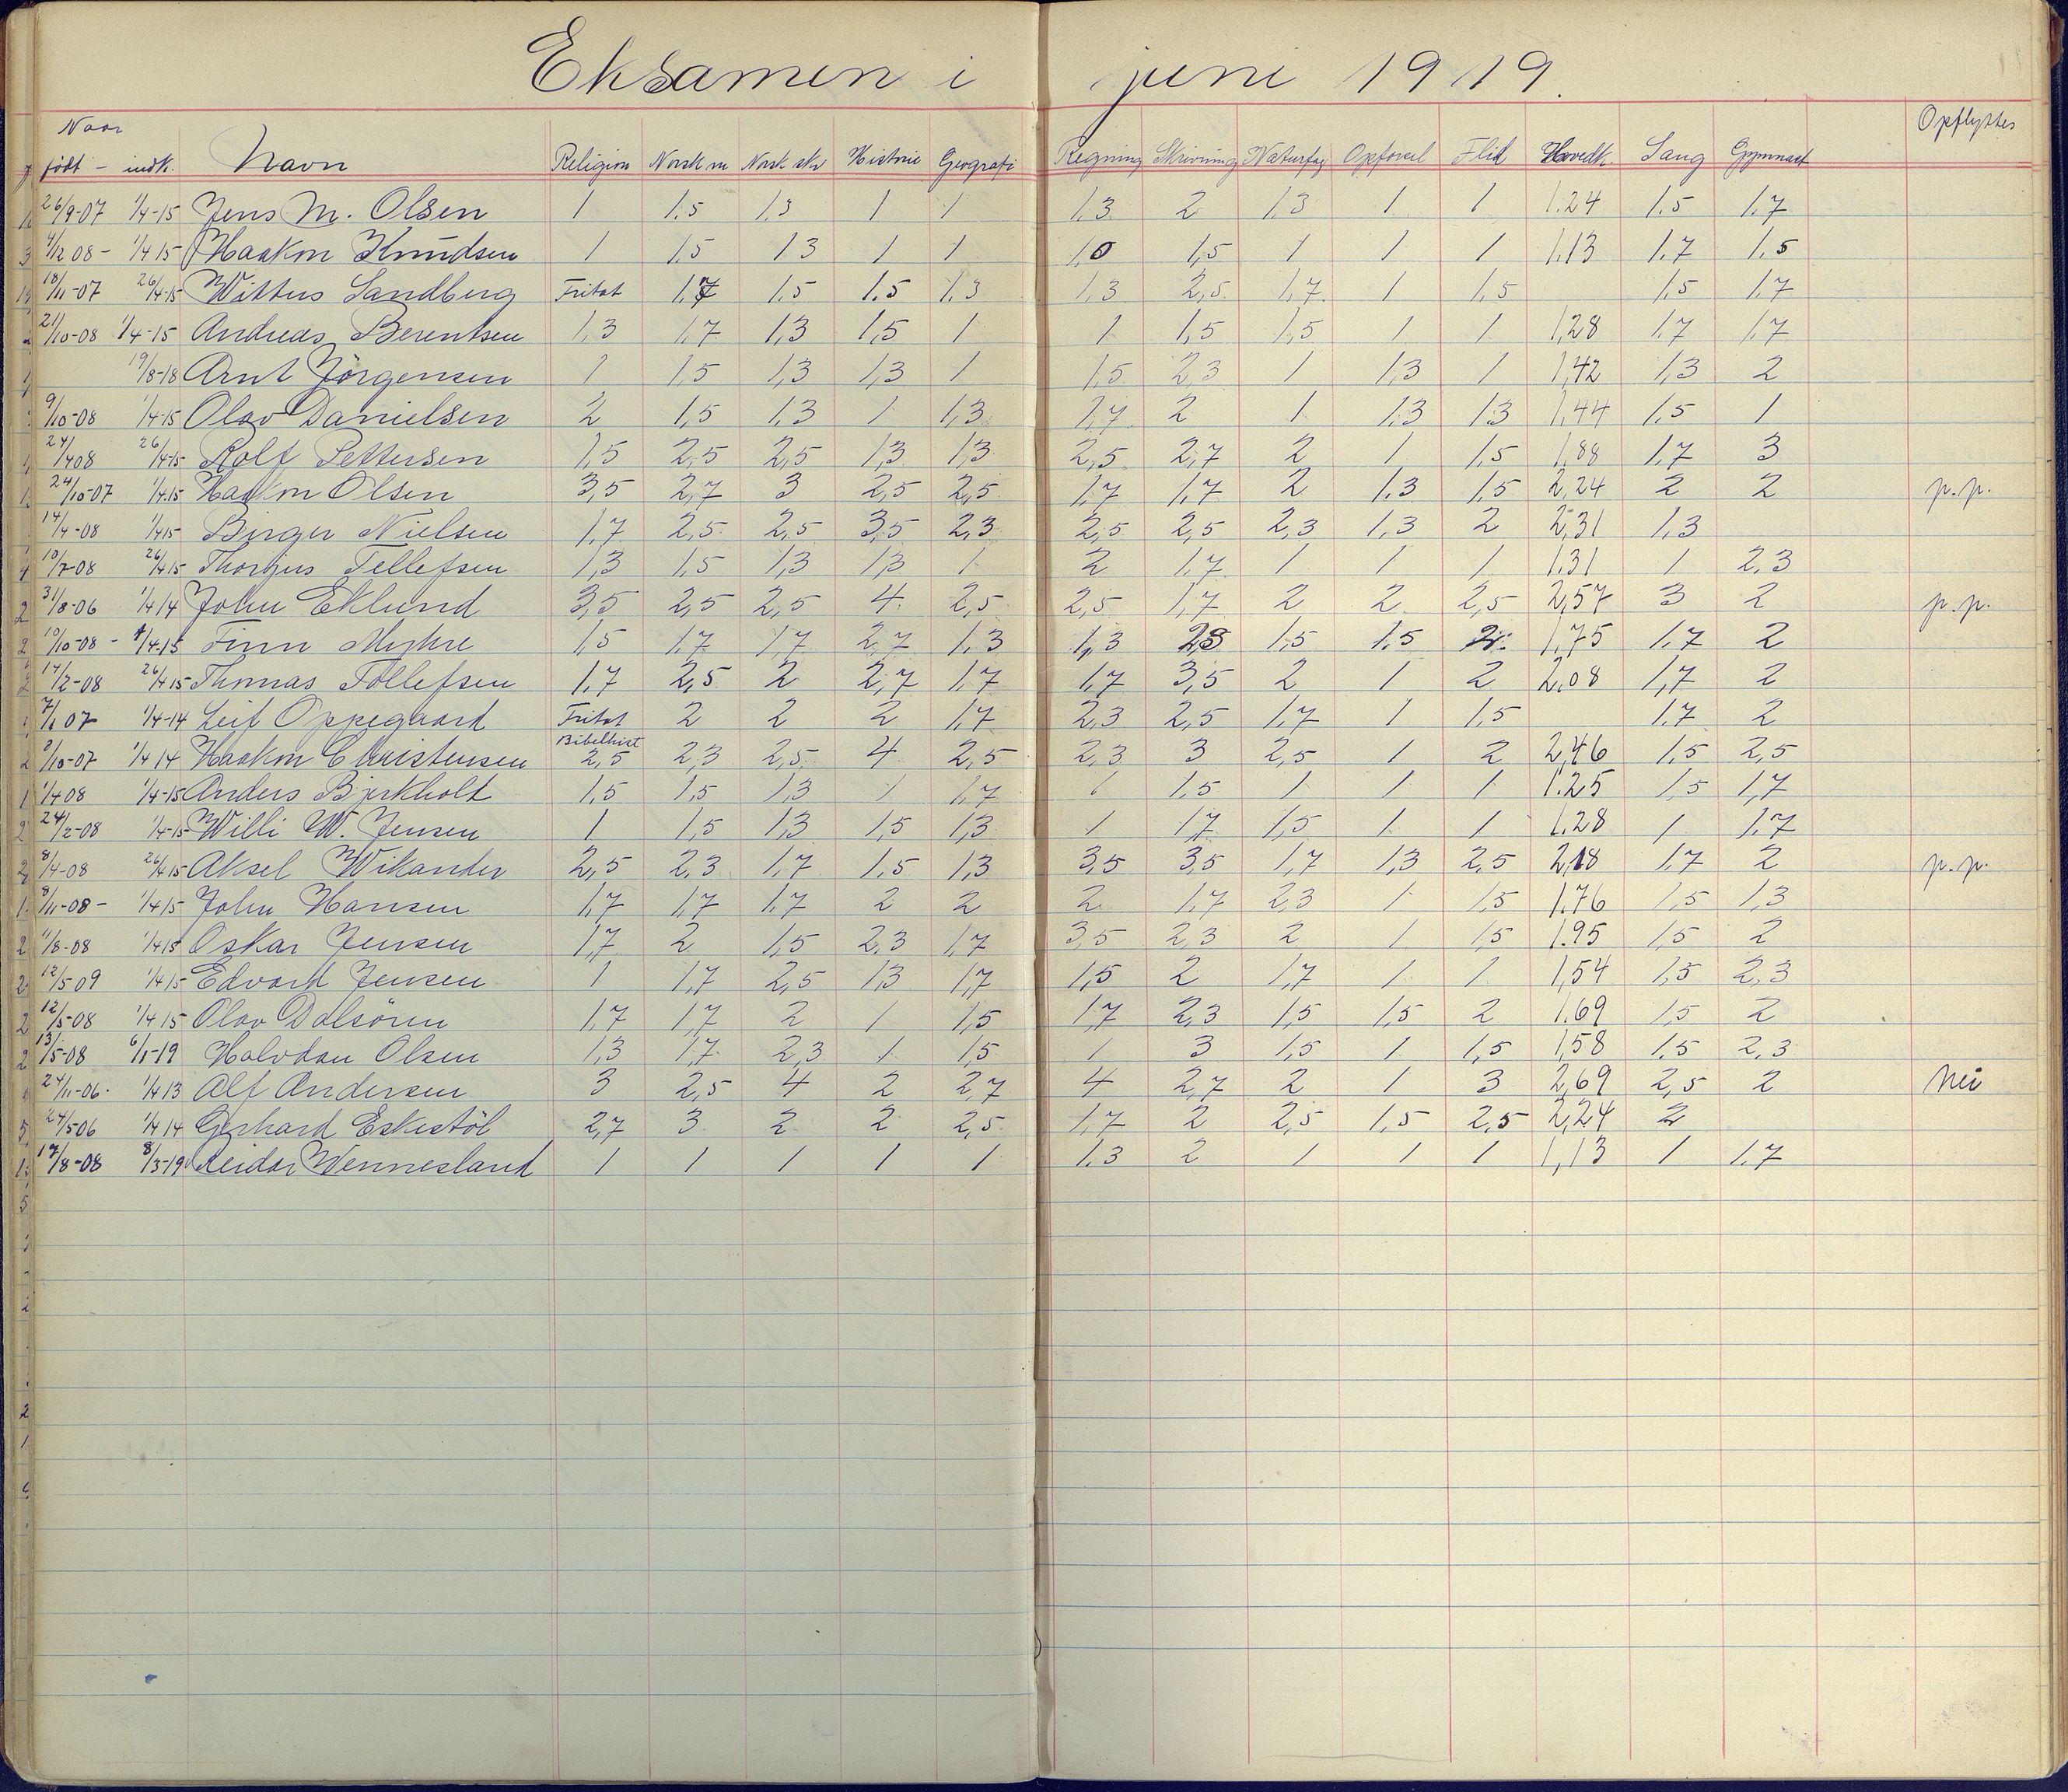 Eksamen i juni 1919.
Naar Opflyttes
født - indk. Navn Religion Norsk m Norsk skr Historie Geografi Regning Skrivning Naturfag Opførsel Flid Hovedk. Sang Gymnast
26/9-07 1/4-15 Jens M. Olsen 1 1.5 1,3 1 1 1,3 2 1,3 1 1 1.24 1.5 1.7
4/12 08 - 1/4 15 Haakon Knudsen 1 1,5 1 3 1 1 1,0 1,5 1 1 1 1,13 1.7 1.5
18/11-07 26/4-15 Wittus Sandberg Fritat 1.7 1.5 1.5 1.3 1,3 2,5 1,7 1 1,5 1,5 1,7
21/10-08 1/4-15 Andreas Berentsen 1,3 1,7 1,3 1,5 1 1 1,5 1,5 1 1 1,28 1,7 1,7
19/8-18 Arnt Jörgensen 1 1,5 1,3 1,3 1 1,5 2,3 1 1,3 1 1,42 1,3 2
9/10-08 1/4-15 Olav Danielsen 2 1,5 1,3 1 1,3 1,7 2 1 1,3 1,3 1,44 1,5 1
24/4 08 26/4-15 Rolf Pettersen 1,5 2,5 2,5 1,3 1,3 2,5 2,7 2 1 1,5 1,88 1,7 3
24/10-07 1/4.15 Haakon Olsen 3,5 2,7 3 2,5 2,5 1,7 1,7 2 1,3 1,5 2,24 2 2 p.p.
14/4-08 1/4 15 Birger Nielsen 1,7 2,5 2,5 3,5 2,3 2,5 2,5 2,3 1,3 2 2,31 1,3
10/7-08 26/4 15 Thorgus Tellefsen 1,3 1,5 1,3 1,3 1 2 1,7 1 1 1 1.31 1 2,3
31/8-06 1/4 14 John Eklund 3,5 2,5 2,5 4 2,5 2,5 1,7 2 2 2,5 2,57 3 2 p.p.
10/10-08 - 1/4-15 Finn Myhre 1,5 1,7 1,7 2,7 1,3 1,3 2,3 1,5 1.5 2 1,75 1,7 2
17/2-08 26/4 15 Thomas Tollefsen 1,7 2,5 2 2,7 1,7 1,7 3,5 2 1 2 2.08 1,7 2
7/1 07 1/4-14 Leif Oppegaard Fritat 2 2 2 1,7 2,3 2,5 1,7 1 1,5 1,7 2
Bibelhist
8/10-07 1/4 14 Haakon Christensen 2,5 2,3 2,5 4 2,5 2,3 3 2,5 1 2 2,46 1,5 2,5
1/4 08 1/4-15 Anders Bjrkholt 1,5 1,5 1,3 1 1,7 1 1,5 1 1 1 1.25 1,5 1,7
24/2-08 1/4-15 Willi W. Jensen 1 1,5 1,3 1,5 1,3 1 1,7 1,5 1 1 1.28 1 1,7
8/4-08 26/4 15 Aksel Wikander 2,5 2,3 1,7 1,5 1,3 3,5 3,5 1,7 1,3 2,5 2,18 1,7 2 p.p.
8/11-08 - 1/4 15 John Hansen 1,7 1,7 1,7 2 2 2 1,7 2,3 1 1,5 1,76 1,5 1,3
11/8-08 1/4 15 Oskar Jensen 1,7 2 1,5 2,3 1,7 3,5 2,3 2 1 1,5 1.95 1,5 2
12/5 09 1/4 15 Edvard Jensen 1 1,7 2,5 1,3 1,7 1,5 2 1,7 1 1 1,54 1,5 2,3
12/5-08 1/4 15 Olav Dalsören 1,7 1,7 2 1 1,5 1,7 2,3 1,5 1,5 2 1.69 1,5 2
13/5-08 6/1-19 Halvdan Olsen 1,3 1,7 2,3 1 1,5 1 3 1,5 1 1,5 1,58 1.5 2,3
24/11-06 1/4 13 Alf Andersen 3 2,5 4 2 2,7 4 2,7 2 1 3 2,69 2,5 2 Nei
24/5 06 1/4 14 Gerhard Eskestöl 2,7 3 2 2 2,5 1,7 2 2,5 1,5 2,5 2,24 2
17/8-08 8/3-19 Reidar Wennesland 1 1 1 1 1 1.3 2 1 1 1 1,13 1 1.7